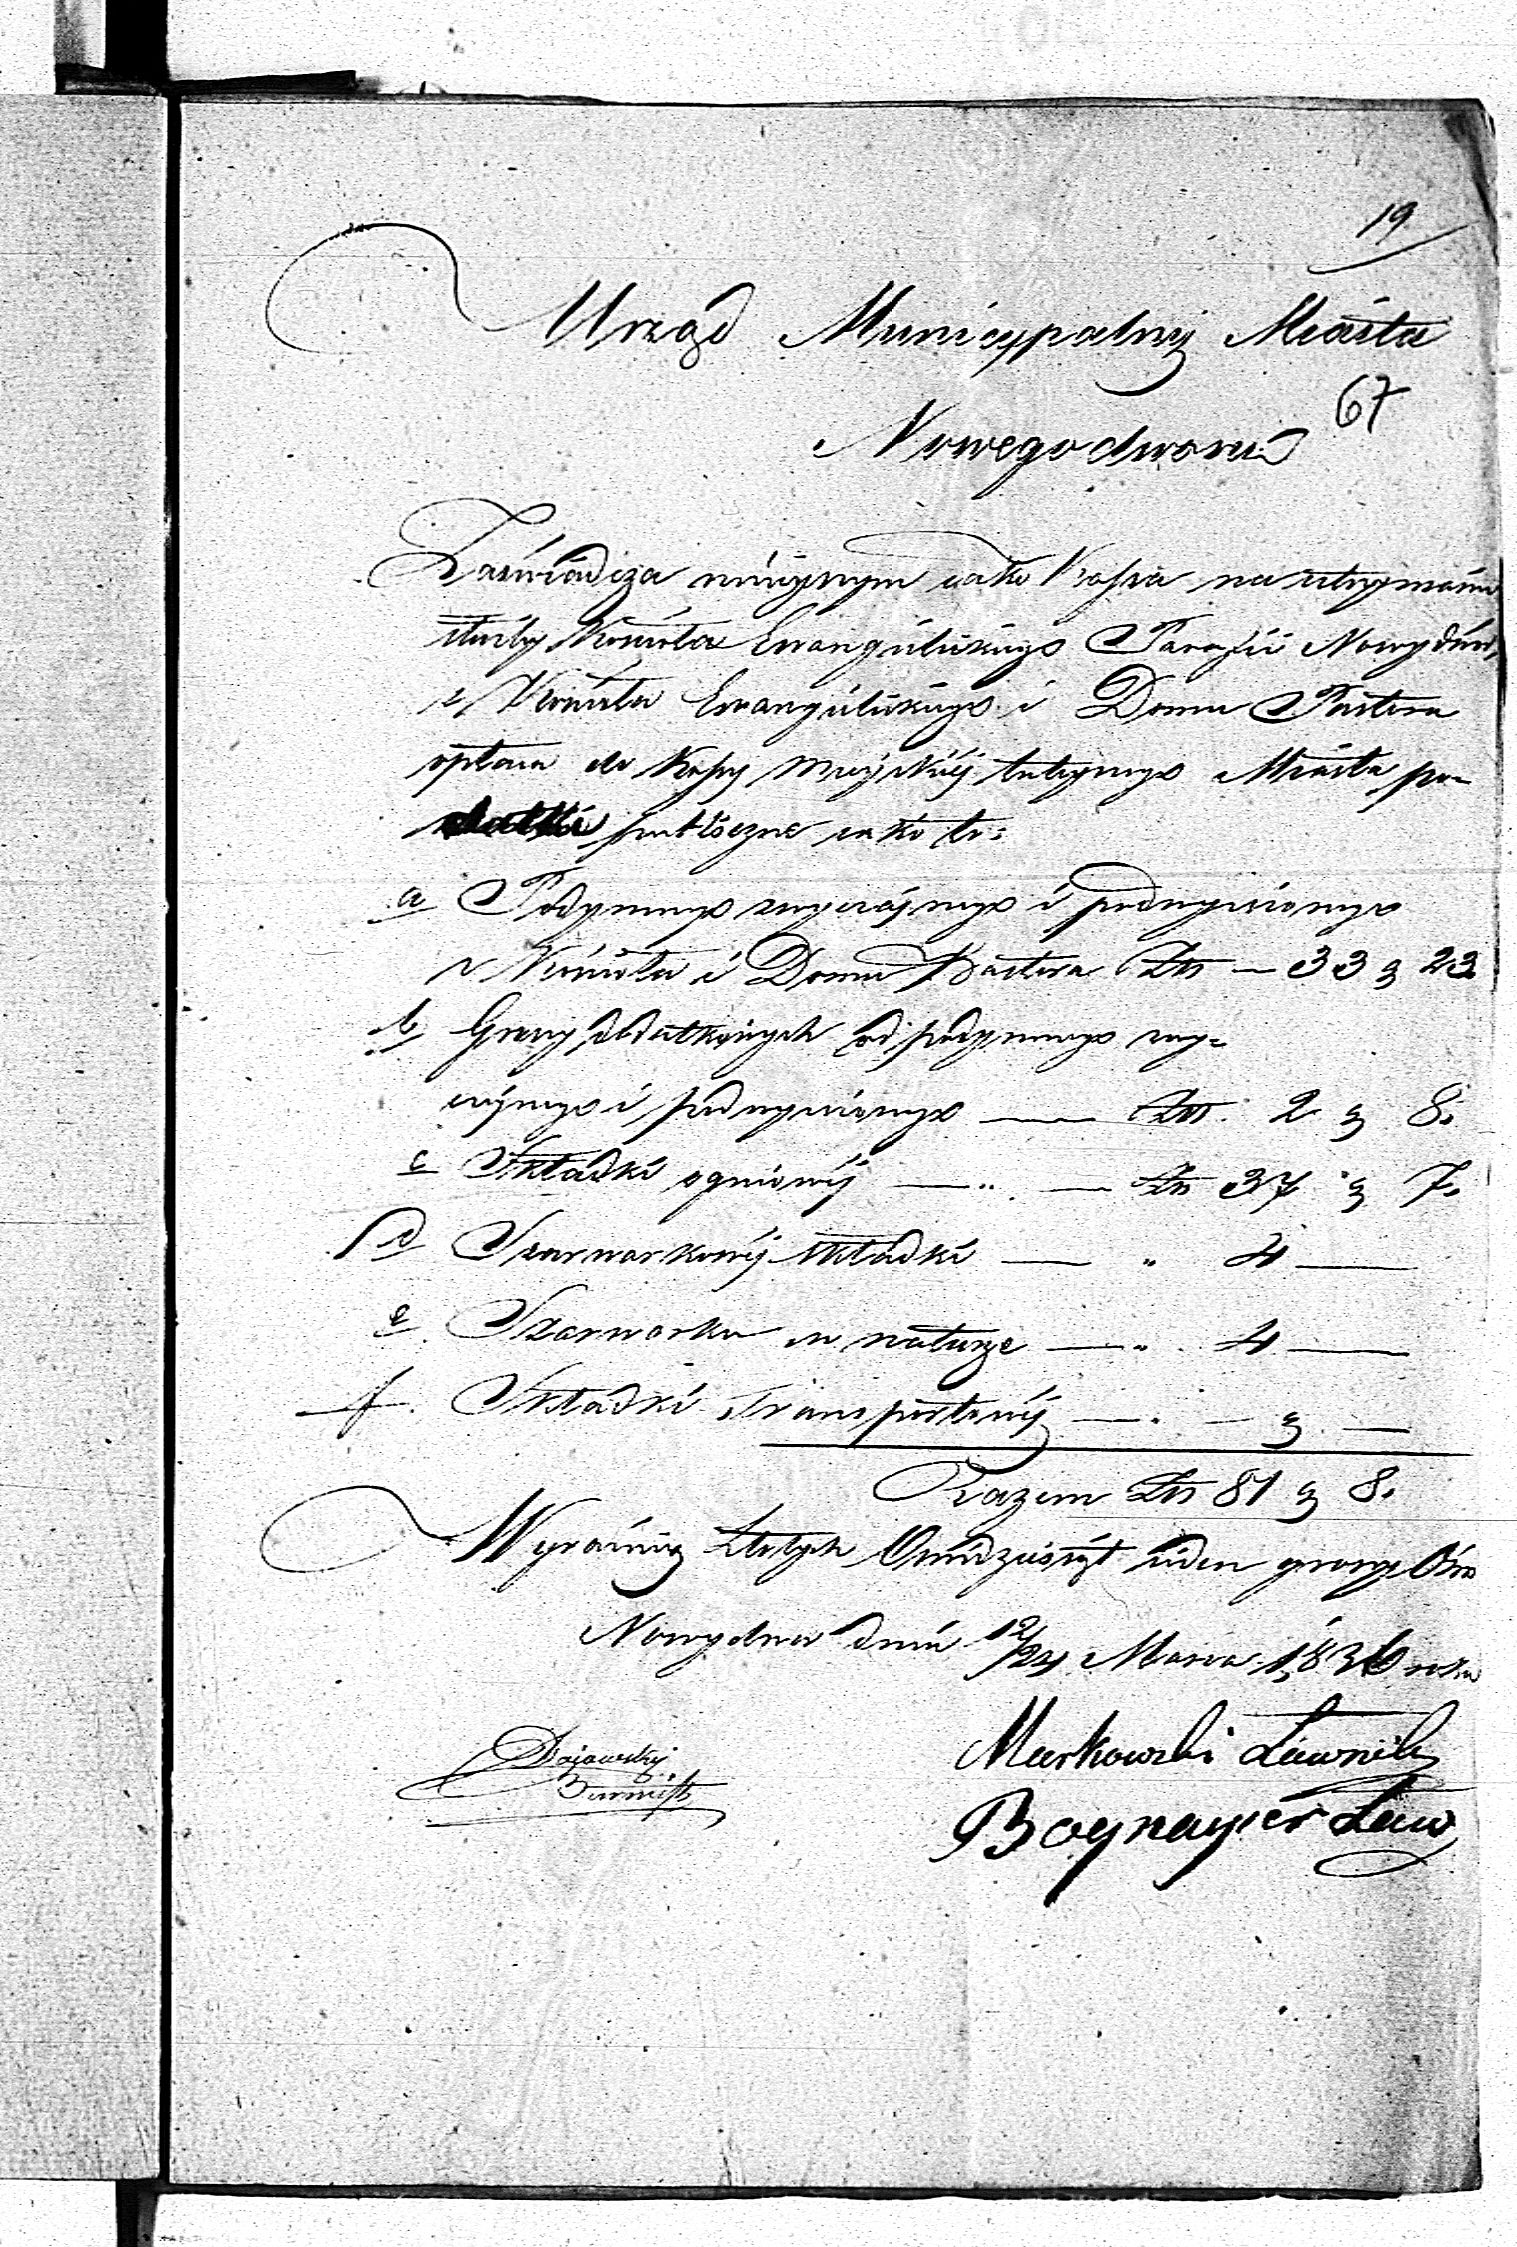 19
Urząd Municypalny Miasta
67
Nowegodworu
Zaświadcza ninieyszym iako Kassa na utrzymanie
służby Kościoła Ewangielickiego Parafii Nowydwór
z Kościoła Ewangielickiego i Domu Pastora
opłaca do Kassy Mieyskiéy tuteyszego Miasta po-
datki publiczne iako to:
a Podymnego zwyczaynego i podwyższonego
z Kościoła i Domu Pastora Złt — 33 g 23
b Groszy dodatkowych od podymnego zwy-
czaynego i podwyższonego — Złt. 2 g 8.
c Składki ogniowéy — „ — Złt 37 g 7.
d Szarwarkowéy składki — „ 4 —
e Szarwarku w naturze — „ 4 —
f. Składki Transportowéy — „ — g —
Razem Złt 81 g 8.
Wyraźnie Złotych Ośmdziesiąt ieden groszy Ośm
Nowydwór dnia 12/24 Marca 1836 roku
Markowski Ławnik
Burmist
Law